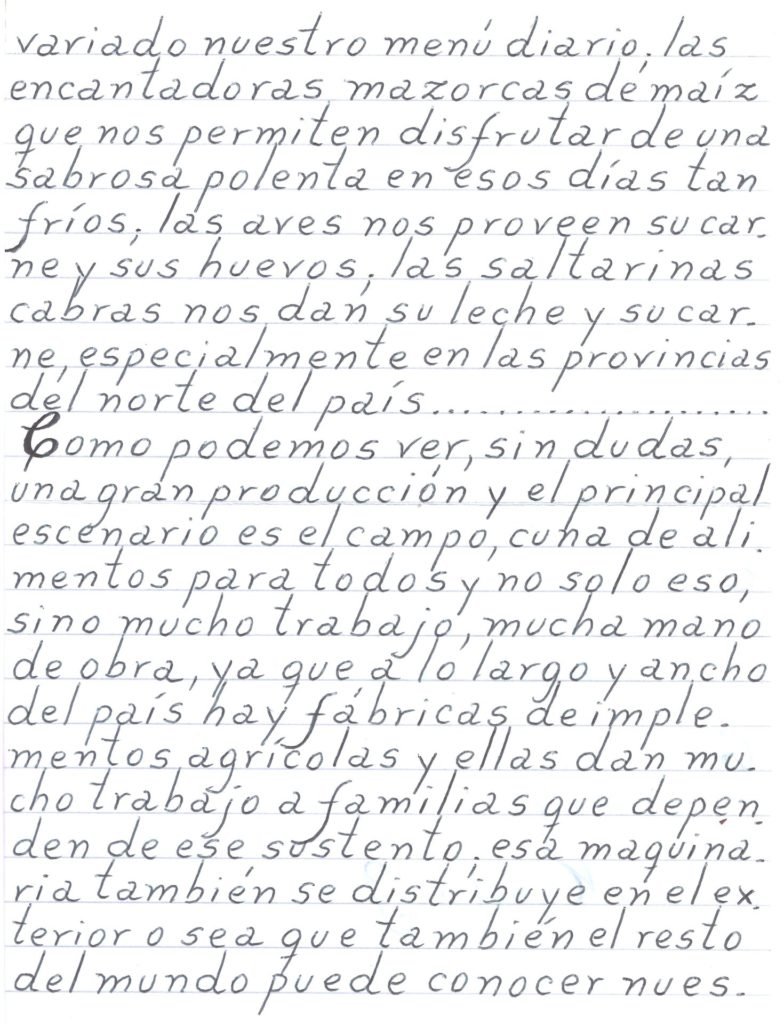 variado nuestro menú diario; las
encantadoras mazorcas de maíz
que nos permiten disfrutar de una
sabrosa polenta en esos días tan
fríos; las aves nos proveen su car-
ne y sus huevos; las saltarinas
cabras nos dan su leche y su car-
ne, especialmente en las provincias
del norte del país......................
Como podemos ver, sin dudas,
una gran producción y el principal
escenario es el campo, cuna de ali-
mentos para todos y no solo eso,
sino mucho trabajo, mucha mano
de obra, ya que a lo largo y ancho
del país hay fábricas de imple-
mentos agrícolas y ellas dan mu-
cho trabajo a familias que depen-
den de ese sustento; esa maquina-
ria también se distribuye en el ex-
terior o sea que también el resto
del mundo puede conocer nues-